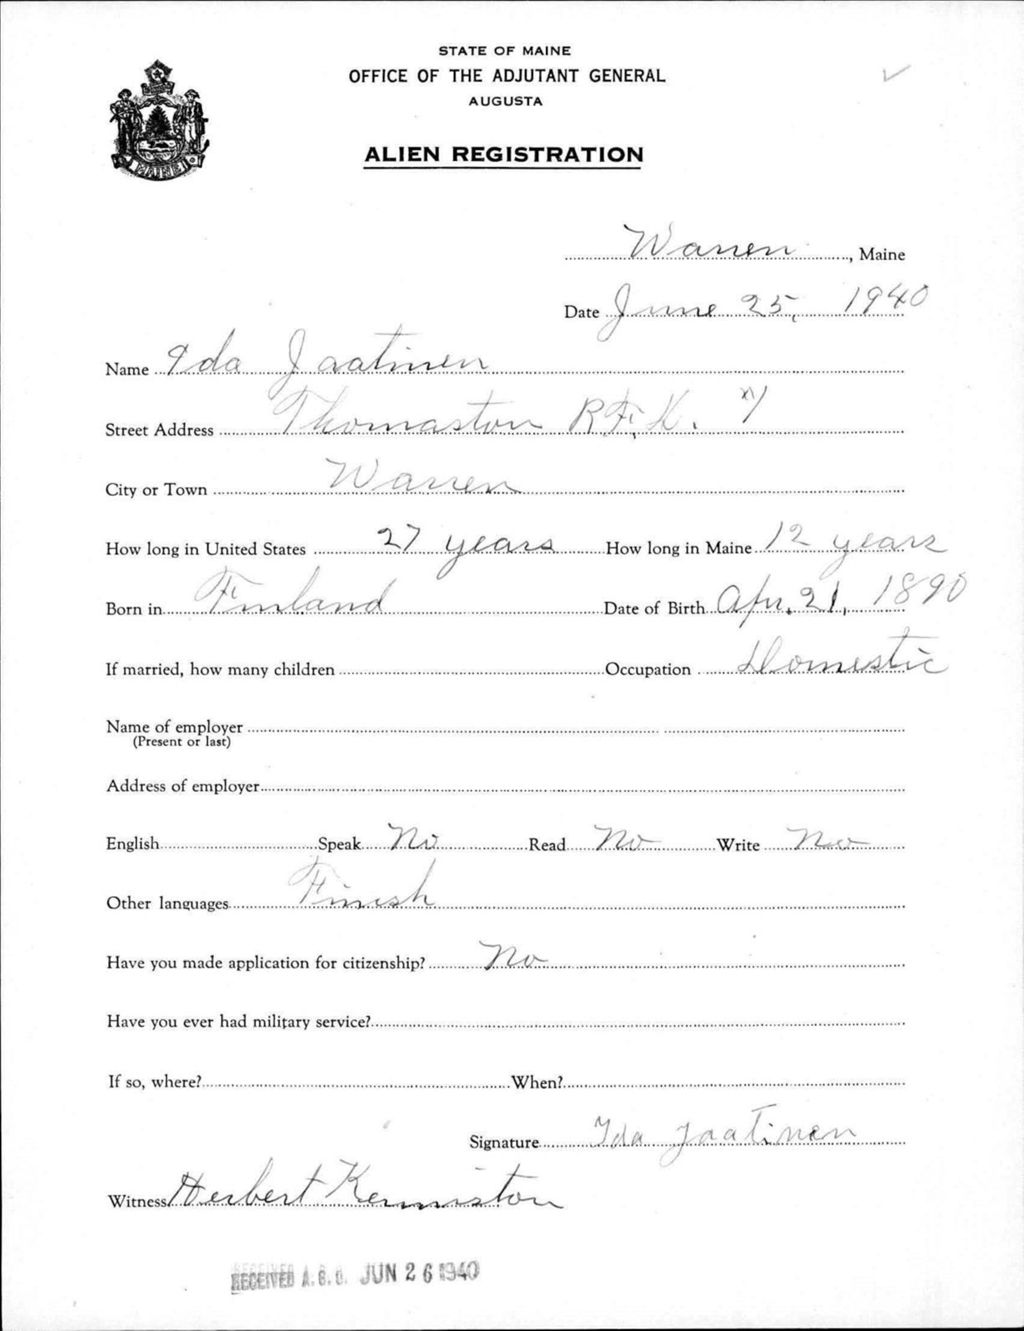 STATE OF MAINE
OFFICE OF THE ADJUTANT GENERAL
AUGUSTA
ALIEN REGISTRATION
MAINE
Warren, Maine
Date June 25, 1940
Name Ida Jaatinen
Street Address Thomaston R.F.D.
City or Town Warren
How long in United States 27 years How long in Maine 12 years
Born in Finland Date of Birth Apr. 21, 1890
If married, how many children Occupation Domestic
Name of employer
(Present or last)
Address of employer
English Speak No Read No Write No
Other languages Finish
Have you made application for citizenship? No
Have you ever had military service?
If so, where? When?
Signature Ida Jaatinen
Witness Herbert Kenniston
RECEIVED A.G.O. JUN 26 1940